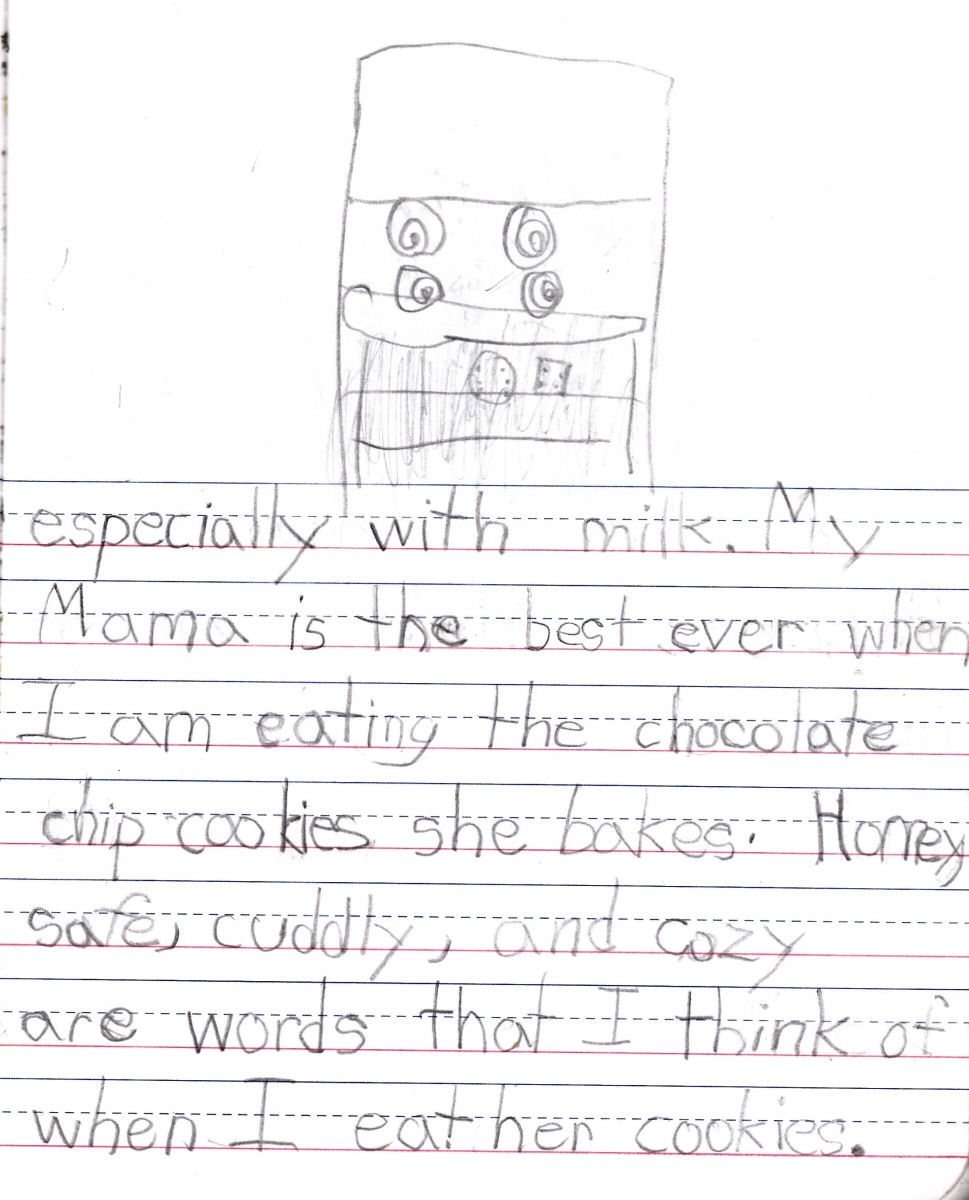 especially with milk. My
Mama is the best ever when
I am eating the chocolate
chip cookies she bakes. Homey
safe, cuddly, and cozy
are words that I think of
when I eat her cookies.